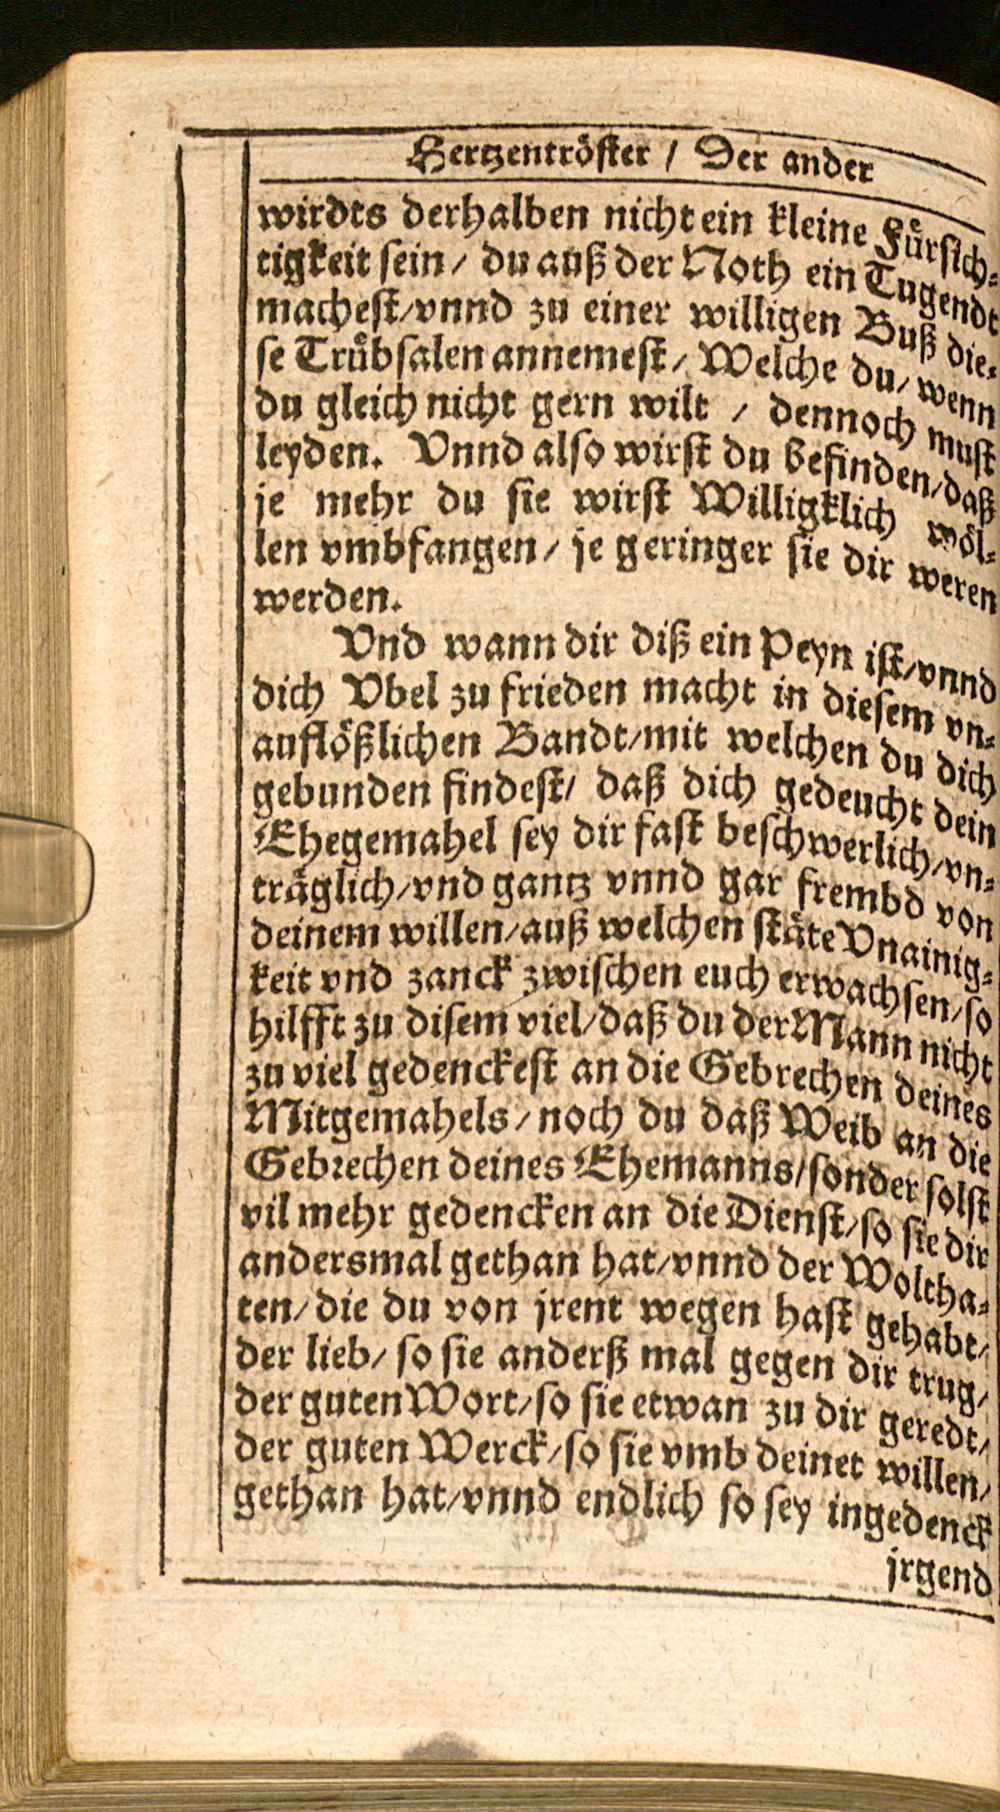 Hertzentröster / Der ander
wirdts derhalben nicht ein kleine Fürsich-
tigkeit sein / du auß der Noth ein Tugendt
machest / vnnd zu einer willigen Buß die-
se Trübsalen annemest / Welche du / wenn
du gleich nicht gern wilt / dennoch must
leyden. Vnnd also wirst du befinden / daß
je mehr du sie wirst Willigklich wöl-
len vmbfangen / je geringer sie dir weren
werden.
Vnd wann dir diß ein Peyn ist / vnnd
dich Vbel zu frieden macht in diesem vn-
auflößlichen Bandt / mit welchen du dich
gebunden findest / daß dich gedeucht dein
Ehegemahel sey dir fast beschwerlich / vn-
träglich / vnd gantz vnnd gar frembd von
deinem willen / auß welchen stäte Vnainig-
keit vnd zanck zwischen euch erwachsen / so
hilfft zu disem viel / daß du der Mann nicht
zu viel gedenckest an die Gebrechen deines
Mitgemahels / noch du daß Weib an die
Gebrechen deines Ehemanns / sonder solst
vil mehr gedencken an die Dienst / so sie dir
andersmal gethan hat / vnnd der Woltha-
ten / die du von jrent wegen hast gehabt /
der lieb / so sie anderß mal gegen dir trug /
der guten Wort / so sie etwan zu dir geredt /
der guten Werck / so sie vmb deinet willen /
gethan hat / vnnd endlich so sey ingedenck
jrgend